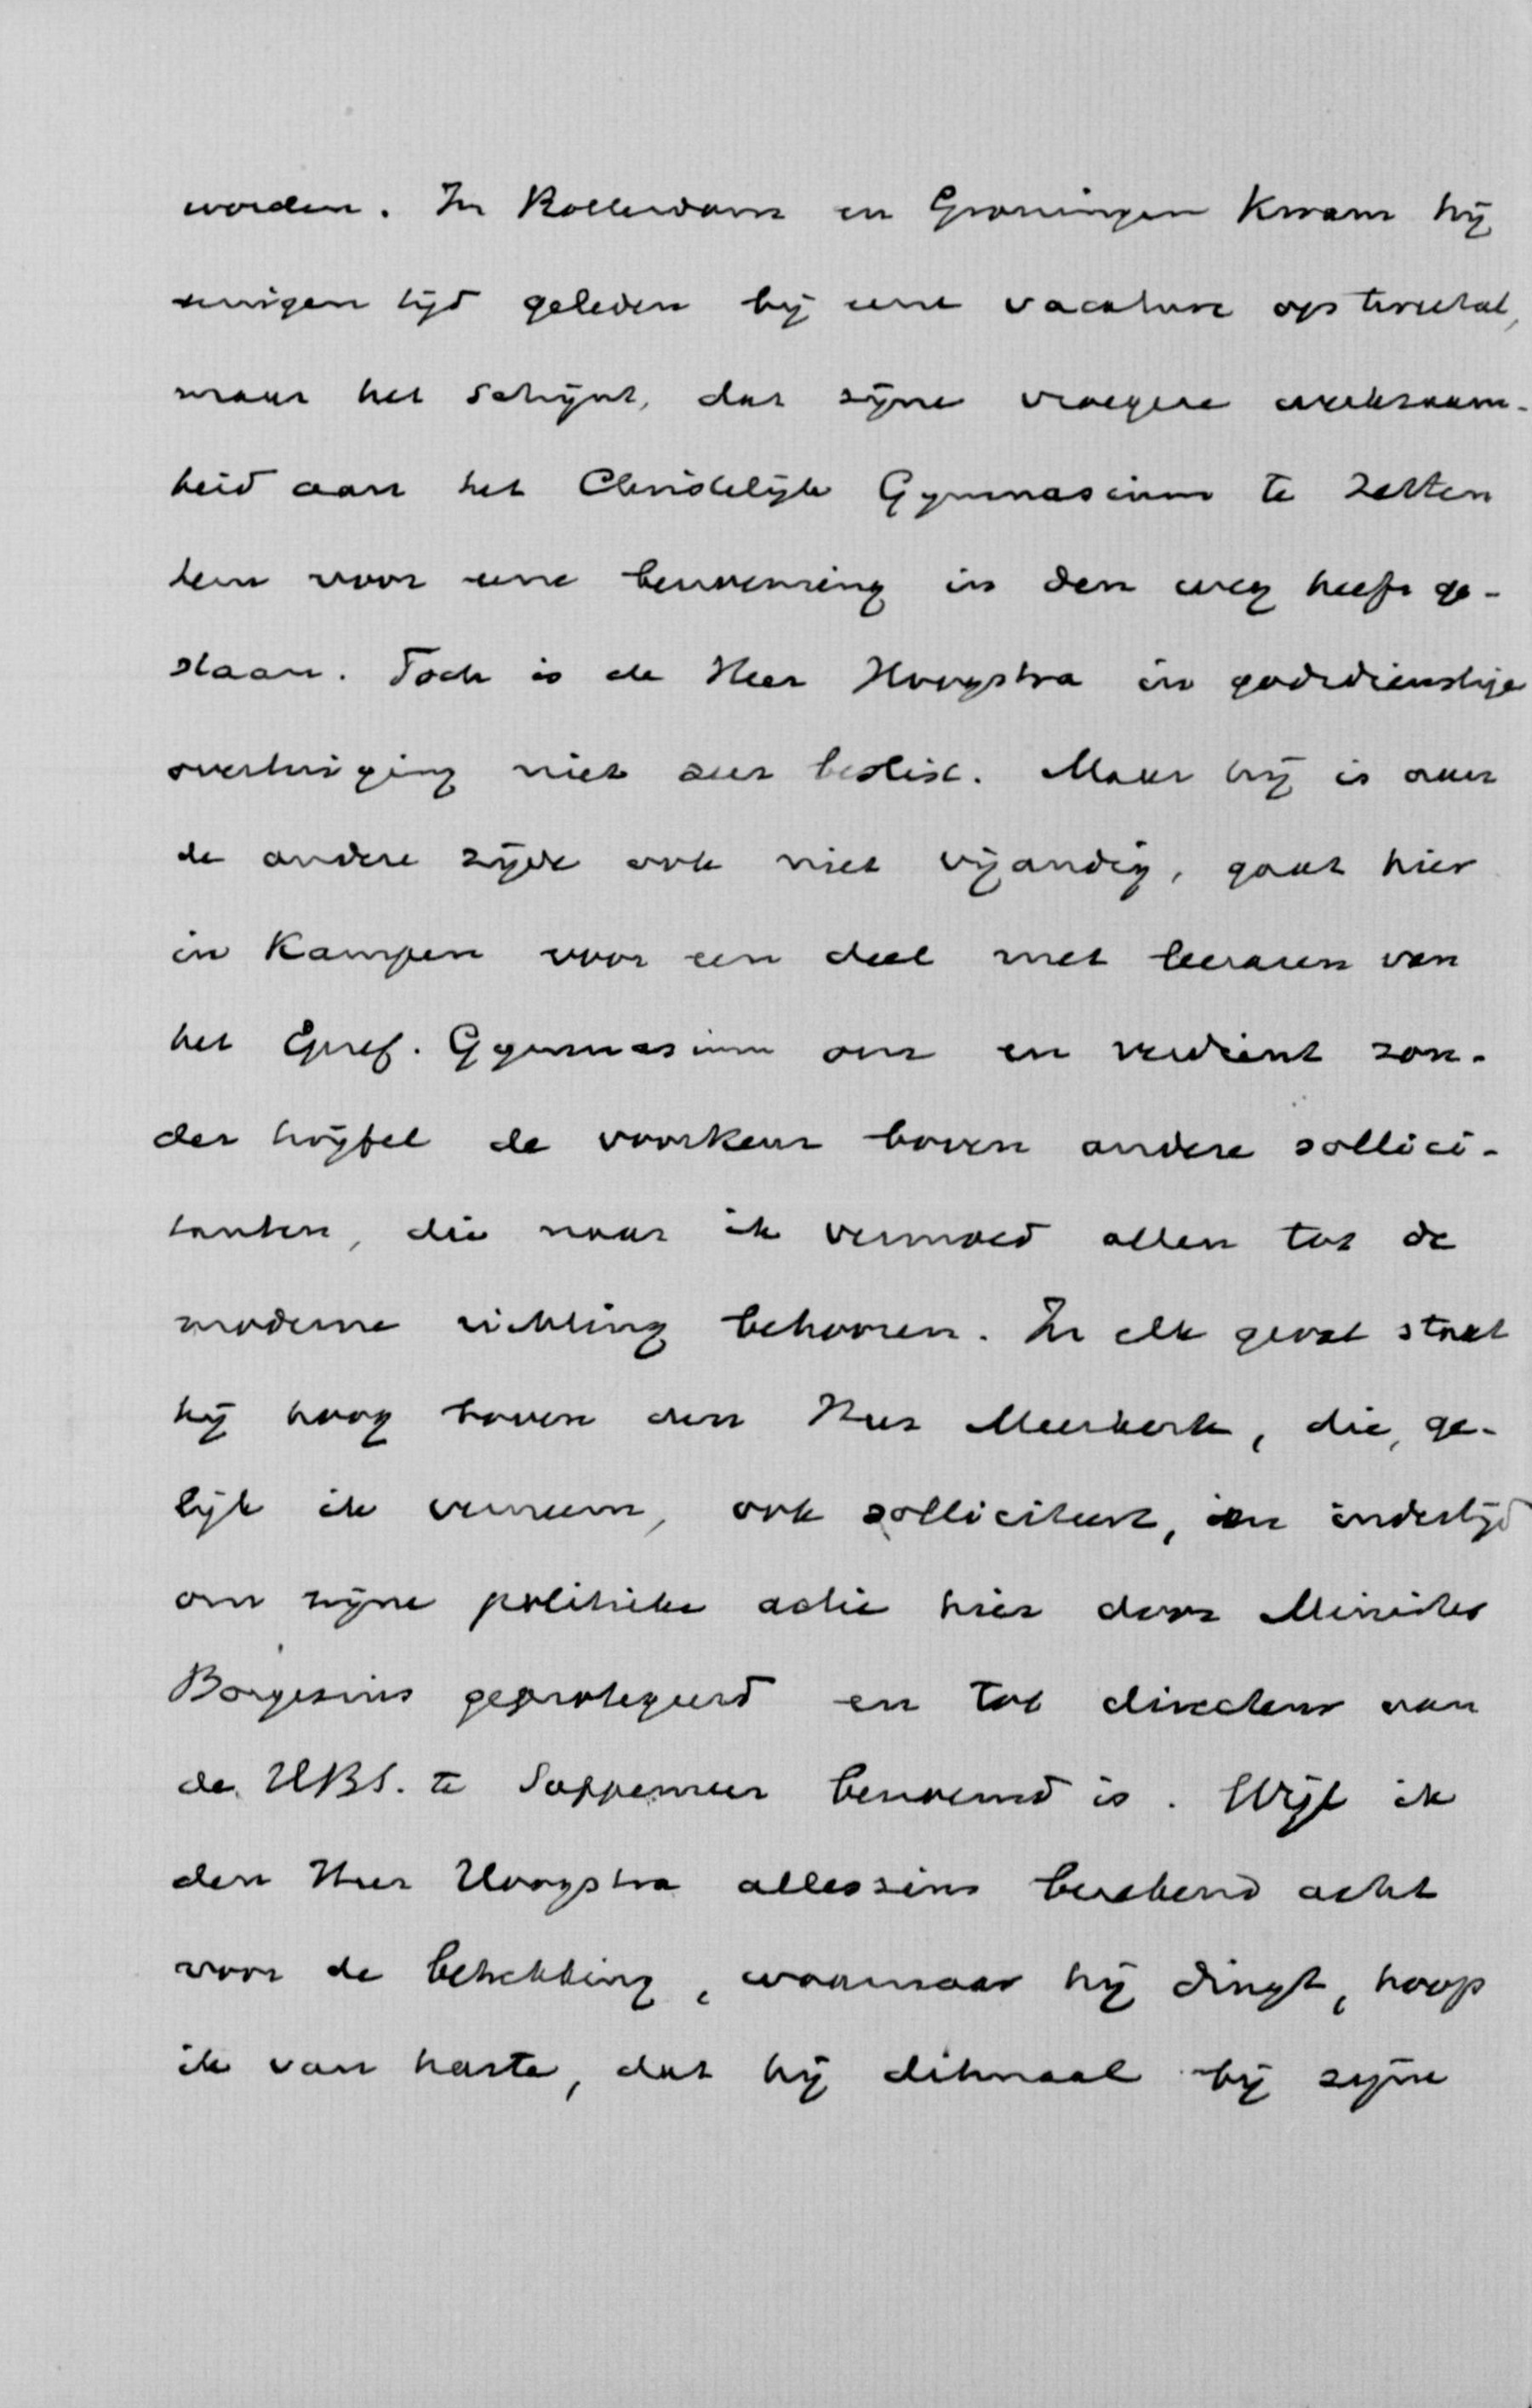 worden. In Rotterdam en Groningen kwam hij
eenigen tijd geleden bij eene vacature op 't viertal,
maar het schijnt, dat zijne vroegere werkzaam-
heid aan het Christelijk Gymnasium te Zetten
hem voor eene benoeming in den weg heeft ge-
staan. Toch is de Heer Hoogstra in godsdienstige
overtuiging niet zeer beslist. Maar hij is aan
de andere zijde ook niet vijandig, gaat hier
in Kampen voor een deel met leeraren van
het Geref. Gymnasium om en verdient zon-
der twijfel de voorkeur boven andere sollici-
tanten, die naar ik vermoed allen tot de
moderne richting behooren. In elk geval staat
hij hoog boven den Heer Meerkerk, die, ge-
lijk ik verneem, ook solliciteert, en indertijd
om zijne politieke actie hier door Minister
Borgesius geprotegeerd en tot directeur van
de HBS. te Sappemeer benoemd is. Wijl ik
den Heer Hoogstra alleszins berekend acht
voor de betrekking, waarnaar hij dingt, hoop
ik van harte, dat hij ditmaal bij zijne